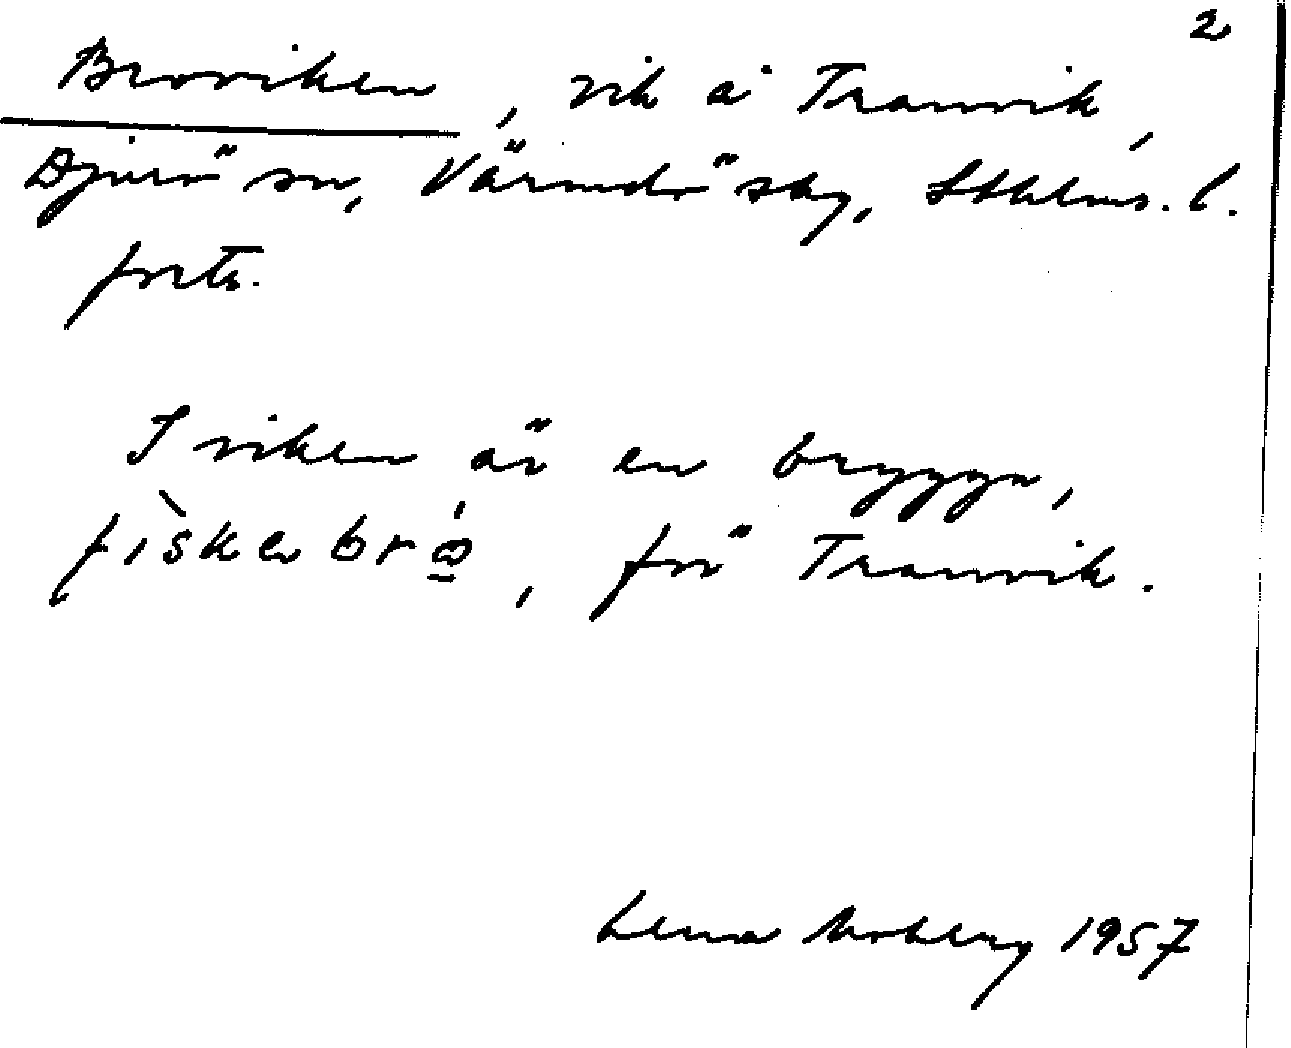 2
Broviken, vik å Tranvik,
Djurö sn, Värmdö skg, Sthlms. l.
forts.
I viken är en brygga,
för Tranvik.
Lena Moberg 1957